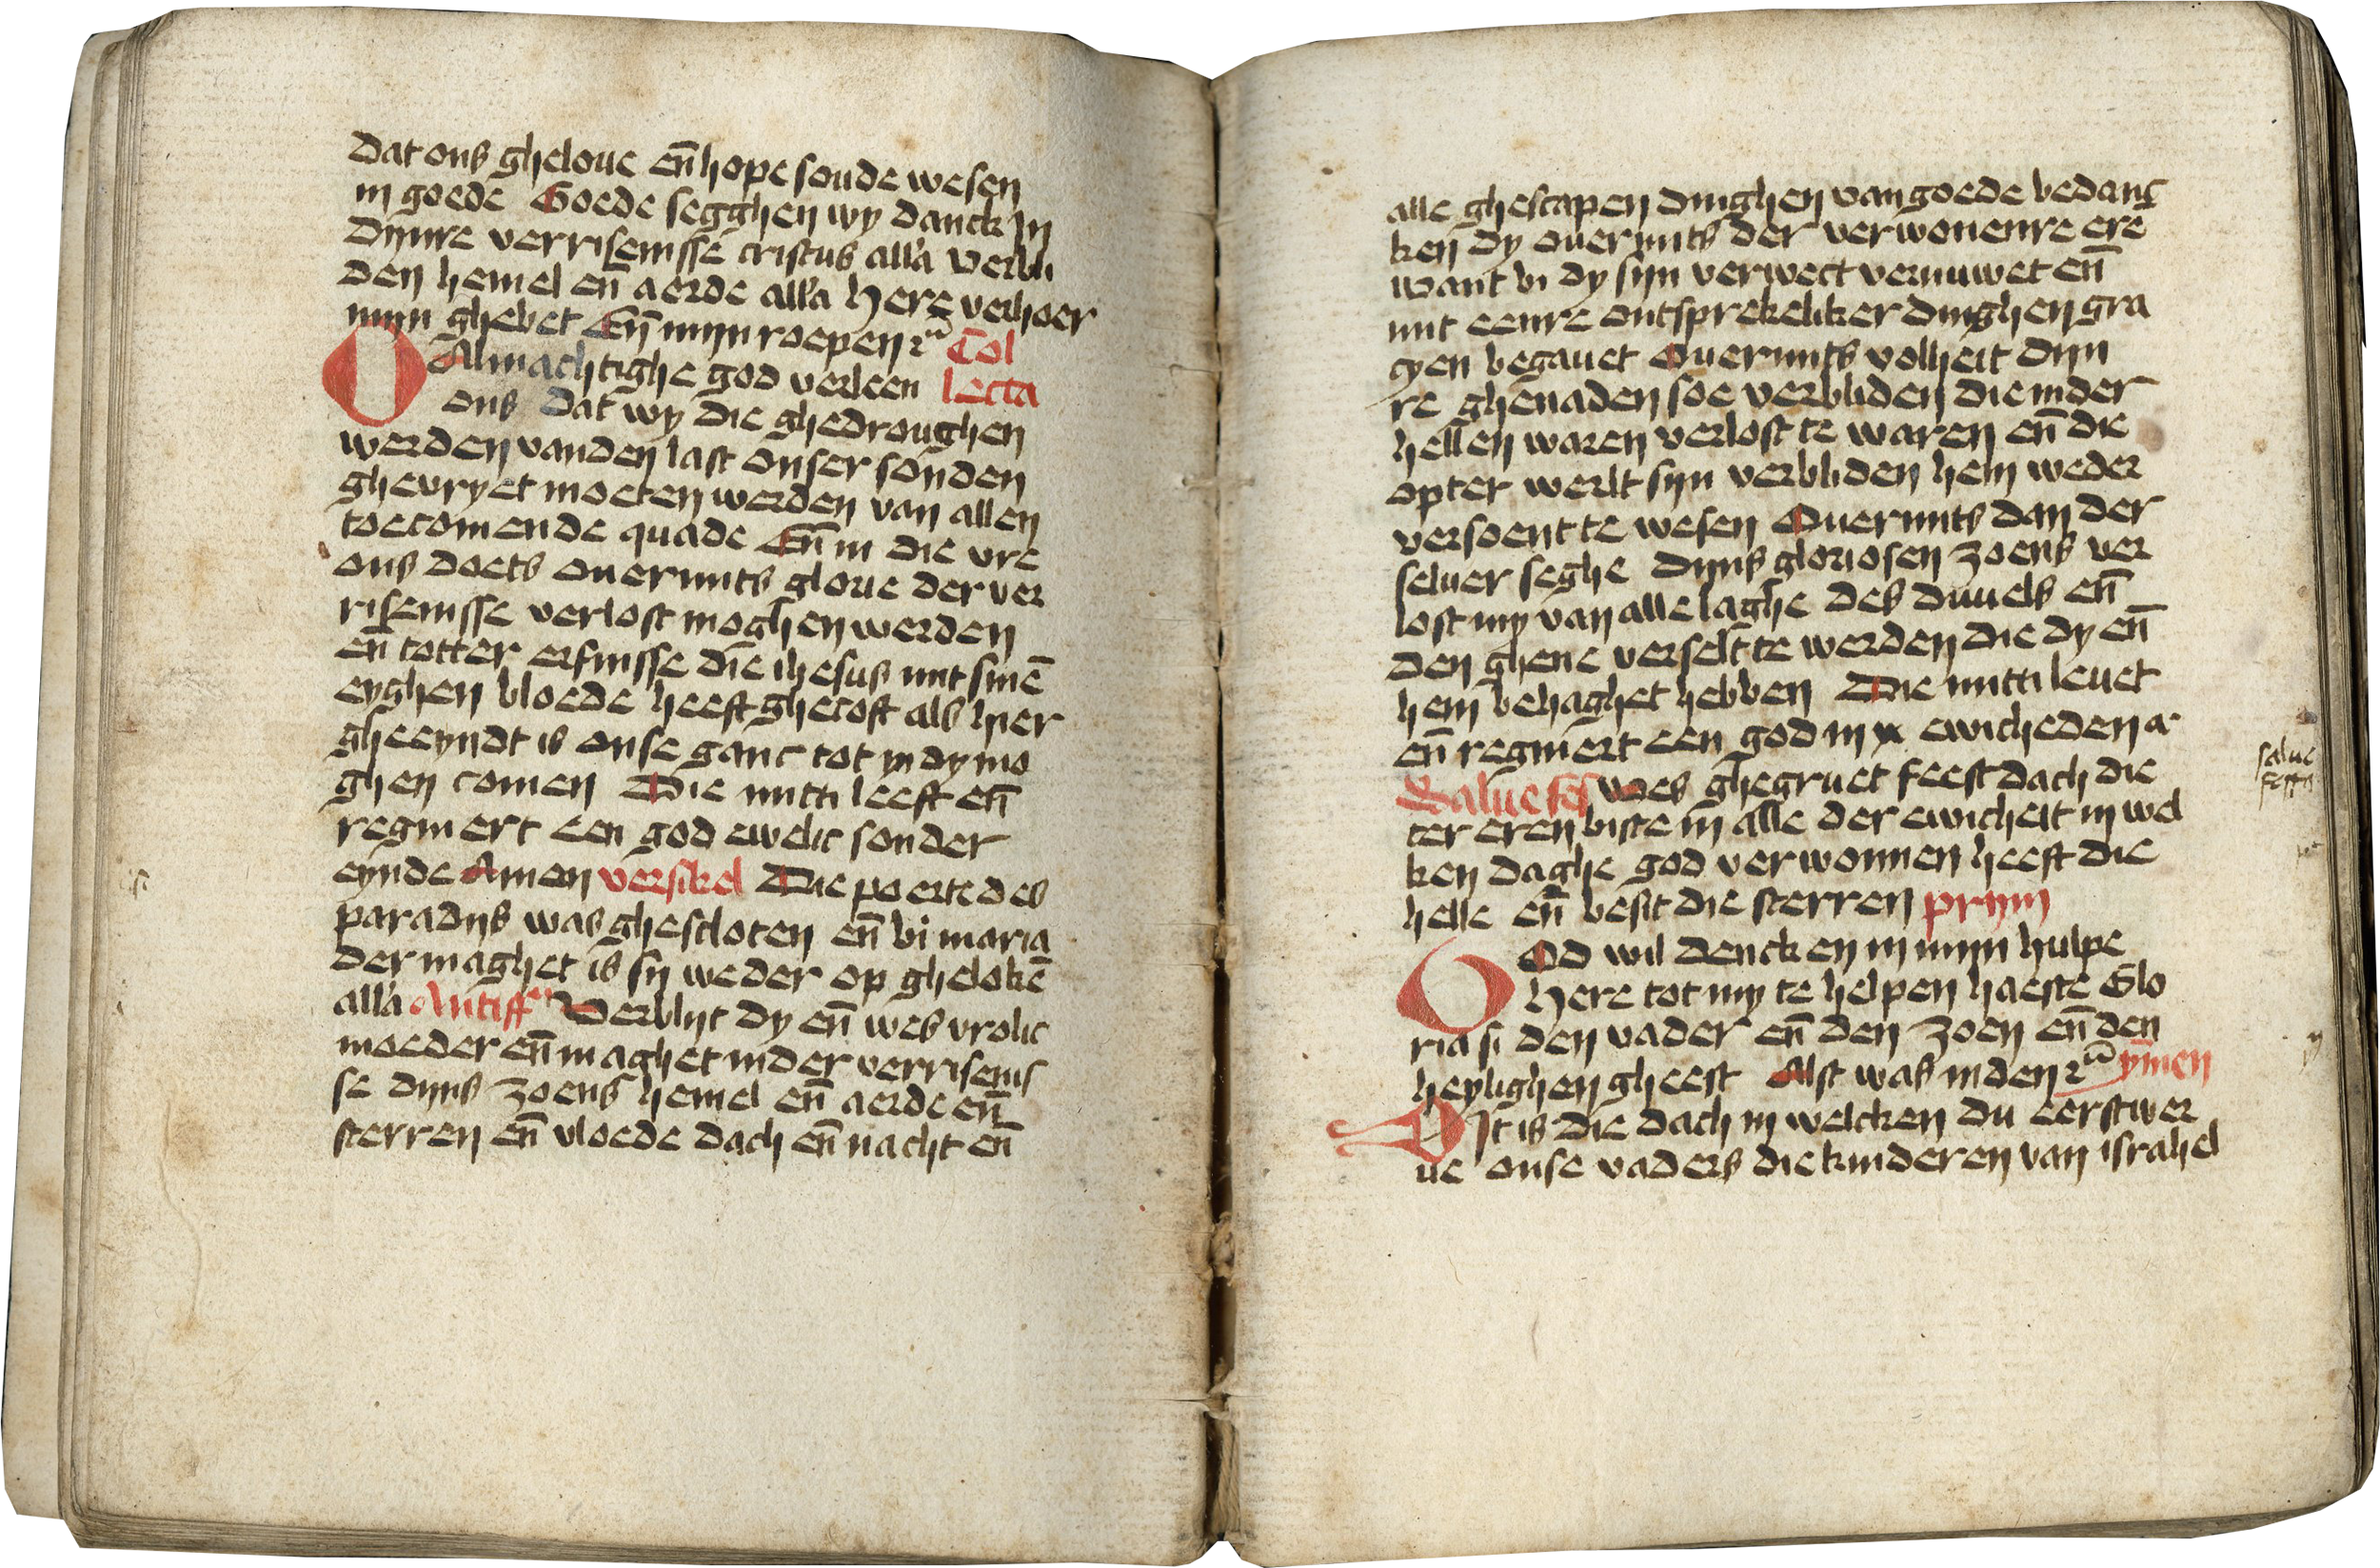 dat ons gheloue en̄ hope soude wesen
in goede Goede segghen wy danck In
dijnre verrisenisse cristus alla Verbli
den hemel en̄ aerde alla Here verhoer
mijn ghebet En̄ mijn roepen rc̄ Col
O Almachtighe god verleen lecta
ons dat wy die ghedroughen
werden vanden last onser sonden
ghevryet moeten werden van allen
toecomende quade En̄ in die vre
ons doets ouermits glorie der ver
risenisse verlost moghen werden
en̄ totter erfnisse die ihesus mit sinē
eyghen bloede heeft ghecoft als hier
gheeyndt is onse ganc tot dy mo
ghen comen Die mitti leeft en̄
regniert een god ewelic sonder
eynde Amen versikel Die poerte des
paradijs was ghesloten en̄ bi maria
der maghet is sy weder op ghelokē
alla Antiff Verblijt dy en̄ wes vrolic
moeder en̄ maghet inder verrisenis
se dijns zoens hemel en̄ aerde en̄
sterren en̄ vloede dach en̄ nacht en̄
alle ghescapen dinghen van goede bedanc
ken dy ouermits der verwonenre ere
want bi dy sijn verwect vernuwet en̄
mit eenre ontsprekeliker dinghen gra
cyen begauet Ouermits volheit dijn
re ghenaden soe verbliden die inder
hellen waren verlost te waren en̄ die
opter werlt sijn verbliden hem weder
versoent te wesen Ouermits dan der
seluer seghe dijns gloriosen zoens ver
lost my van alle laghe des duuels en̄
den ghene verselt te werden die dy en̄
hem behaghet hebben Die mitti leuet
en̄ regniert een god in ewicheden a
Salue fes Wes ghegruet feestdach die
ter eren biste in alle der ewicheit in wel
ken daghe god verwonnen heeft die
helle en̄ besit die sterren prijm
God wil dencken in mijn hulpe
Here tot my te helpen haeste Glo
ria si den vader en̄ den zoen en̄ den
heylighen gheest Alst was inden rc̄ ymen
DIt is die dach in welcken du eerstwer
ue onse vaders die kinderen van israhel
salue
festa